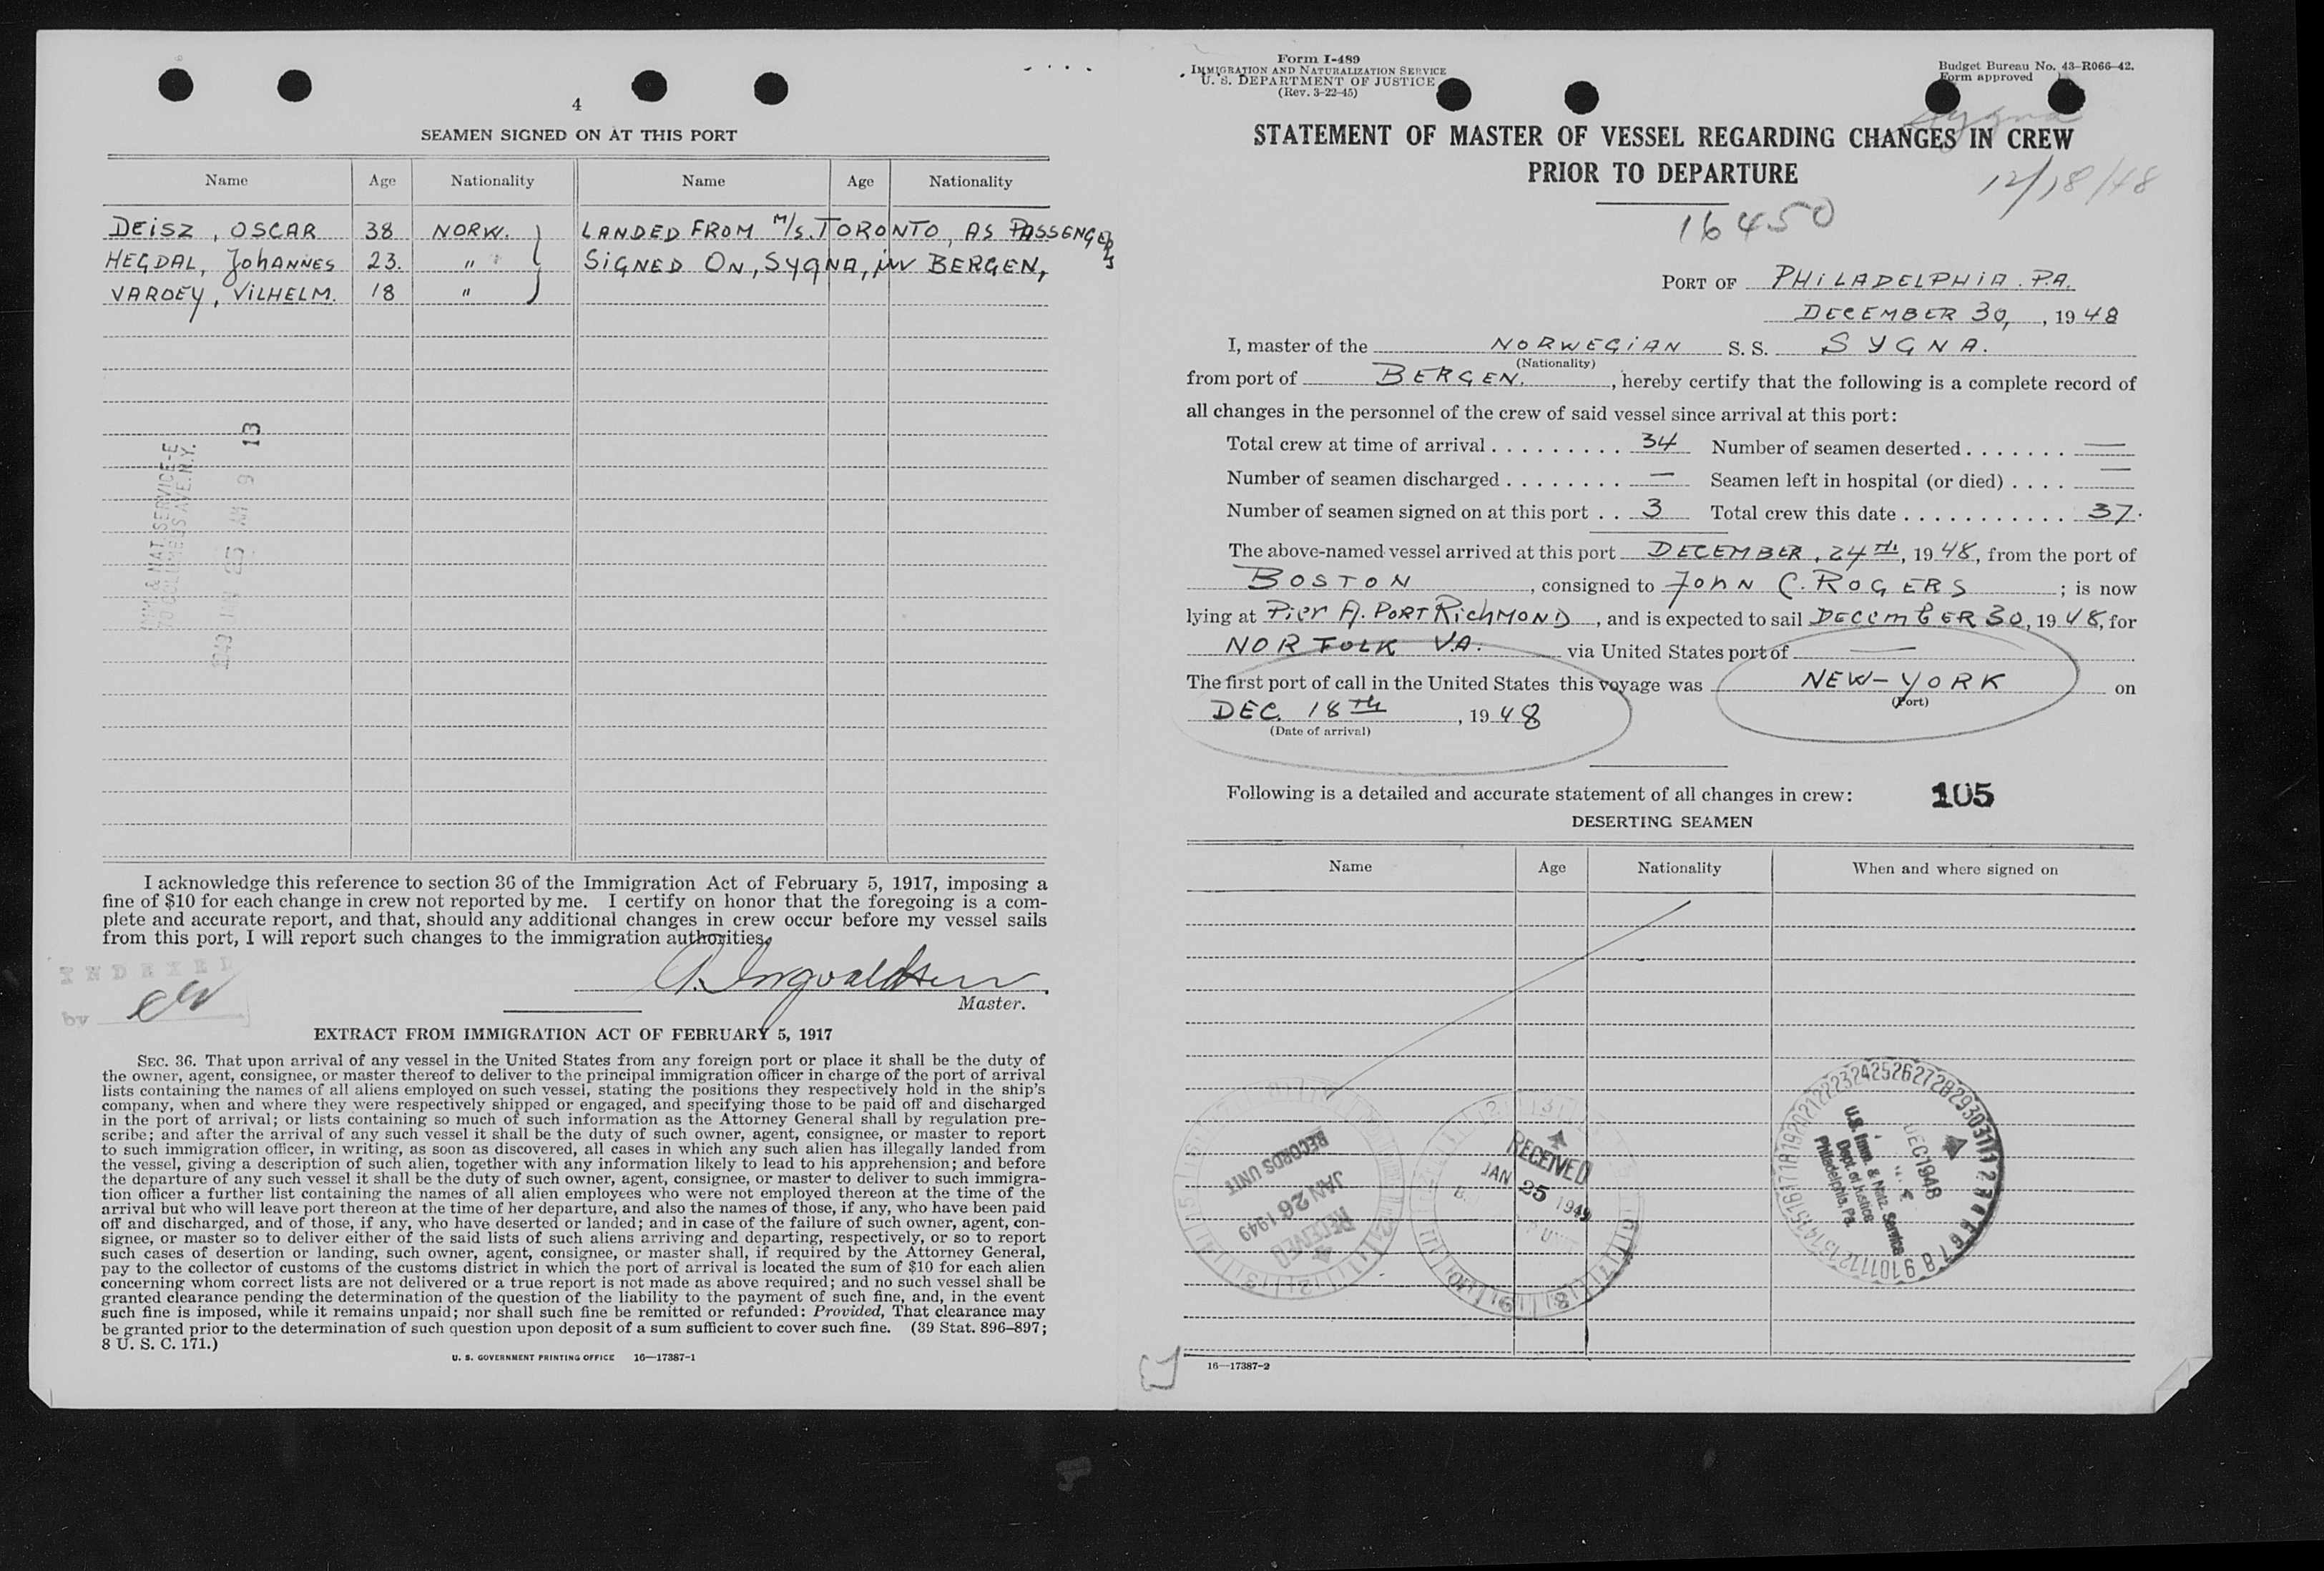 4
SEAMEN SIGNED ON AT THIS PORT
Name Age Nationality Name Age Nationality
DEISZ, OSCAR 38 NORW. LANDED FROM M/S. TORONTO, AS PASSENGERS
HEGDAL, JOHANNES 23. " SIGNED ON, SYGNA, BERGEN,
VARDEY, VILHELM. 18 "
IMM & NAT SERVICE-E
70 COLUMBUS AVE. N.Y.
AM 9 13
I acknowledge this reference to section 36 of the Immigration Act of February 5, 1917, imposing a
fine of $10 for each change in crew not reported by me. I certify on honor that the foregoing is a com-
plete and accurate report, and that, should any additional changes in crew occur before my vessel sails
from this port, I will report such changes to the immigration authorities.
Ingvaldsen
Master.
INDEXED
by
EXTRACT FROM IMMIGRATION ACT OF FEBRUARY 5, 1917
SEC. 36. That upon arrival of any vessel in the United States from any foreign port or place it shall be the duty of
the owner, agent, consignee, or master thereof to deliver to the principal immigration officer in charge of the port of arrival
lists containing the names of all aliens employed on such vessel, stating the positions they respectively hold in the ship's
company, when and where they were respectively shipped or engaged, and specifying those to be paid off and discharged
in the port of arrival; or lists containing so much of such information as the Attorney General shall by regulation pre-
scribe; and after the arrival of any such vessel it shall be the duty of such owner, agent, consignee, or master to report
to such immigration officer, in writing, as soon as discovered, all cases in which any such alien has illegally landed from
the vessel, giving a description of such alien, together with any information likely to lead to his apprehension; and before
the departure of any such vessel it shall be the duty of such owner, agent, consignee, or master to deliver to such immigra-
tion officer a further list containing the names of all alien employees who were not employed thereon at the time of the
arrival but who will leave port thereon at the time of her departure, and also the names of those, if any, who have been paid
off and discharged, and of those, if any, who have deserted or landed; and in case of the failure of such owner, agent, con-
signee, or master so to deliver either of the said lists of such aliens arriving and departing, respectively, or so to report
such cases of desertion or landing, such owner, agent, consignee, or master shall, if required by the Attorney General,
pay to the collector of customs of the customs district in which the port of arrival is located the sum of $10 for each alien
concerning whom correct lists are not delivered or a true report is not made as above required; and no such vessel shall be
granted clearance pending the determination of the question of the liability to the payment of such fine, and, in the event
such fine is imposed, while it remains unpaid; nor shall such fine be remitted or refunded: Provided, That clearance may
be granted prior to the determination of such question upon deposit of a sum sufficient to cover such fine. (39 Stat. 896–897;
8 U. S. C. 171.)
U. S. GOVERNMENT PRINTING OFFICE 16—17387-1
Form I-489
IMMIGRATION AND NATURALIZATION SERVICE
U. S. DEPARTMENT OF JUSTICE
(Rev. 3-22-45)
Budget Bureau No. 43-R066-42.
Form approved
Sygna
STATEMENT OF MASTER OF VESSEL REGARDING CHANGES IN CREW
PRIOR TO DEPARTURE
12/18/48
16450
PORT OF PHILADELPHIA. P.A.
DECEMBER 30, , 1948
I, master of the NORWEGIAN S. S. SYGNA.
(Nationality)
from port of BERGEN. , hereby certify that the following is a complete record of
all changes in the personnel of the crew of said vessel since arrival at this port:
Total crew at time of arrival . . . . . . . . . 34 Number of seamen deserted . . . . . . . —
Number of seamen discharged . . . . . . . . — Seamen left in hospital (or died) . . . . —
Number of seamen signed on at this port . . 3 Total crew this date . . . . . . . . . . . . 37.
The above-named vessel arrived at this port DECEMBER, 24TH, 1948, from the port of
BOSTON , consigned to JOHN C. ROGERS ; is now
lying at PIER A. PORT RICHMOND , and is expected to sail DECEMBER 30, 1948, for
NORFOLK VA. via United States port of —
The first port of call in the United States this voyage was NEW-YORK on
(Port)
DEC. 18TH , 1948
(Date of arrival)
Following is a detailed and accurate statement of all changes in crew: 105
DESERTING SEAMEN
Name Age Nationality When and where signed on
RECORDS UNIT
JAN 26 1949
RECEIVED
RECEIVED
JAN 25 1949
DEC 1948
U.S. Imm. & Natz. Service
Dept. of Justice
Philadelphia, Pa.
16—17387-2